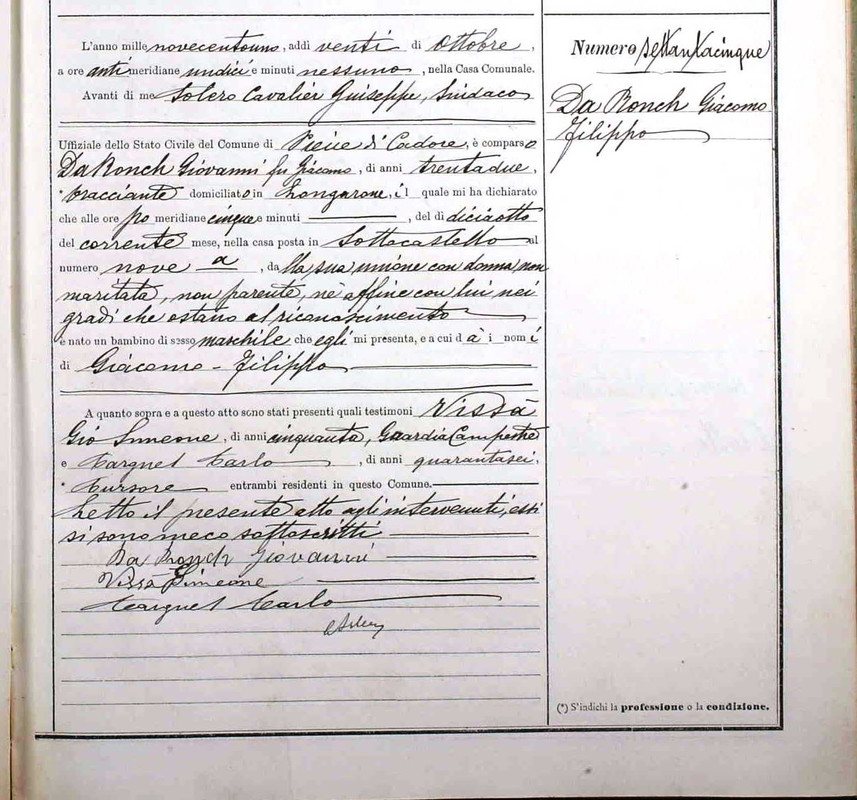 L'anno mille novecentouno, addì venti di Ottobre,
a ore antimeridiane undici e minuti nessuno, nella Casa Comunale.
Avanti di me Solero Cavalier Guiseppe, Sindaco
Uffiziale dello Stato Civile del Comune di Pieve di Cadore, è comparso
Da Ronch Giovanni fu Giacomo, di anni trentadue,
* bracciante domiciliato in Longarone, il quale mi ha dichiarato
che alle ore pomeridiane cinque e minuti, del dì diciaotto
del corrente mese, nella casa posta in Sottocastello al
numero nove a, dalla sua unione con donna, non
maritata, non parente, nè affine con lui nei
gradi che ostano al riconoscimento
è nato un bambino di sesso maschile che egli mi presenta, e a cui dà i nomi
di Giacomo - Filippo
A quanto sopra e a questo atto sono stati presenti quali testimoni Vissà
Gio Simeone, di anni cinquanta, Guardia Campestre
e Targnet Carlo, di anni quarantasei,
* Cursore entrambi residenti in questo Comune.
Letto il presente atto agli intervenuti, essi
si sono meco sottoscritti
Da Ronch Giovanni
Vissà Simeone
Targnet Carlo
Numero settantacinque
Da Ronch Giacomo
Filippo
(*) S'indichi la professione o la condizione.